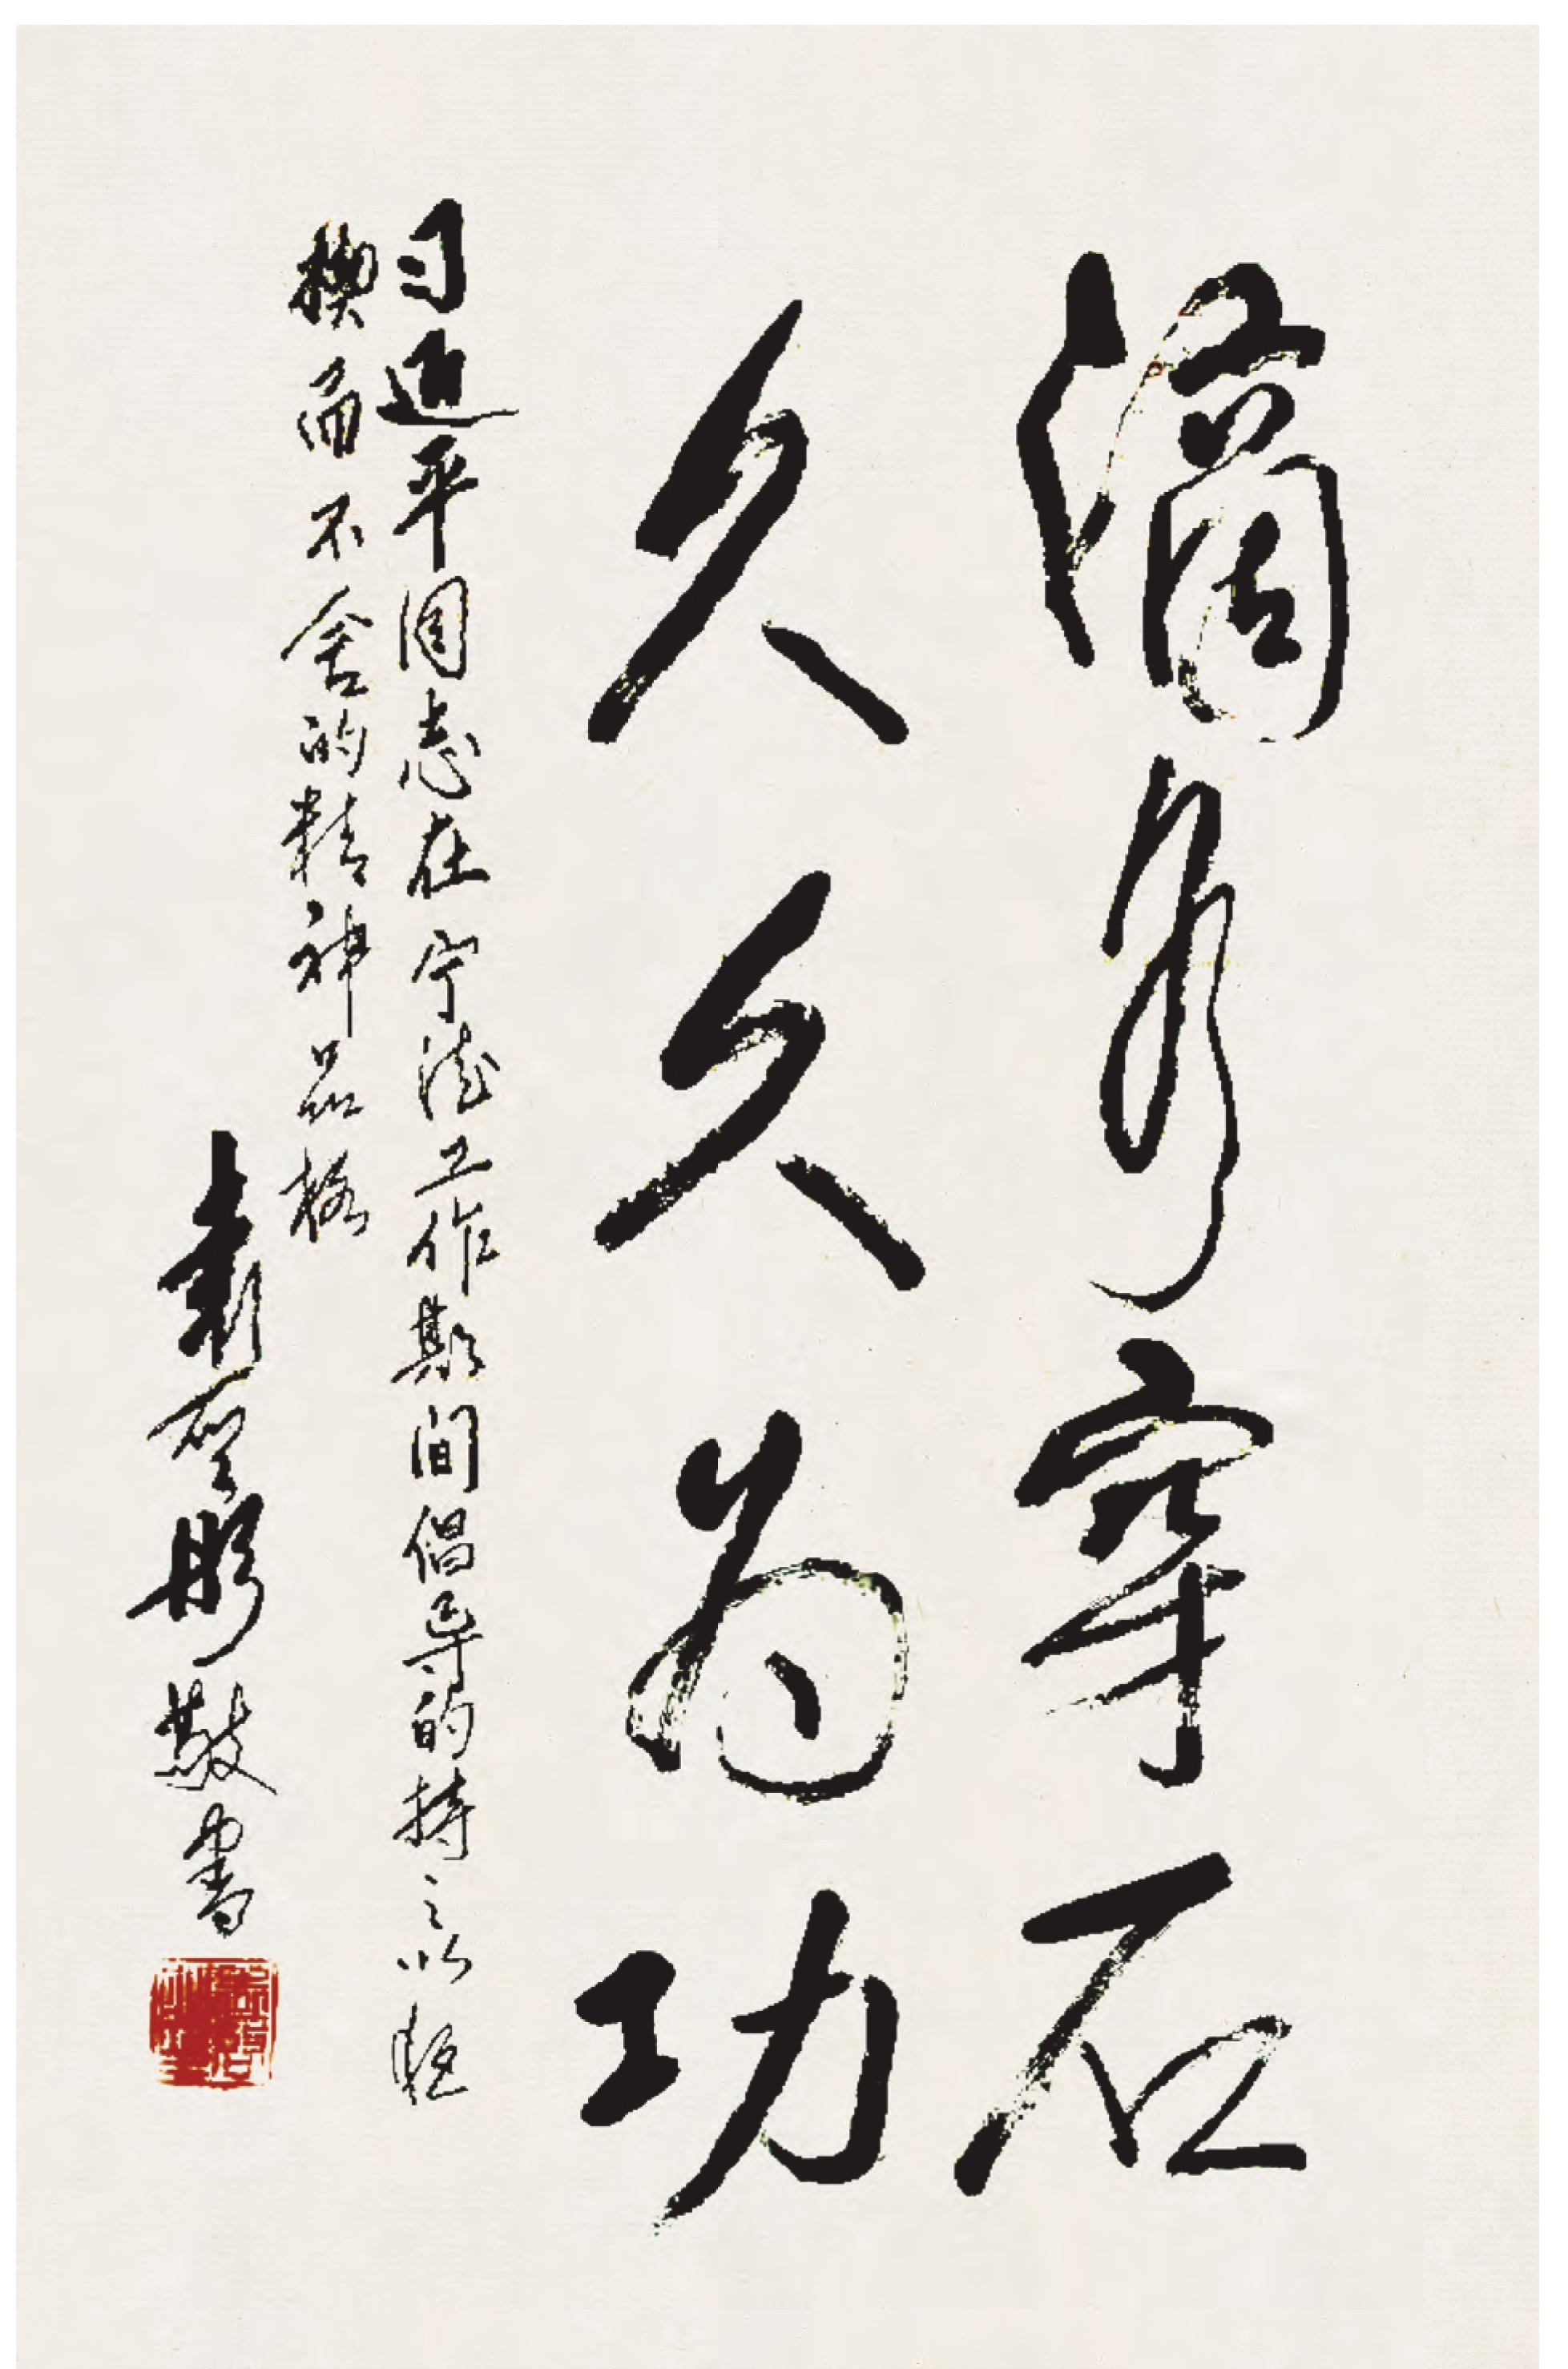 滴水穿石
久久为功
习近平同志在宁德工作期间倡导的持之以恒
锲而不舍的精神品格
袁启彤敬书